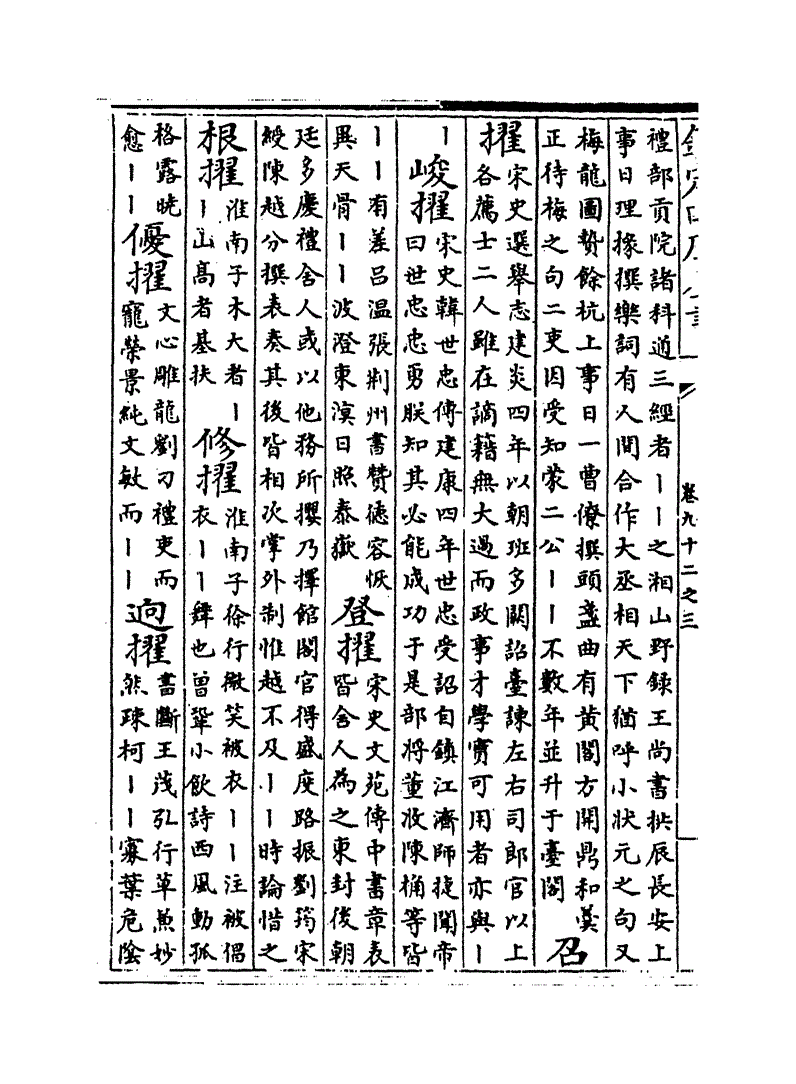 欽定四庫全書
卷九十二之三
禮部貢院諸科通三經者丨丨之湘山野錄王尚書拱辰長安上
事日理掾撰樂詞有人間合作大丞相天下猶呼小狀元之句又
梅龍圖摯餘杭上事日一曹僚撰頭盞曲有黃閣方開鼎和羹
正待梅之句二吏因受知蒙二公丨丨不數年並升于臺閣
召
擢
宋史選舉志建炎四年以朝班多闕詔臺諫左右司郎官以上
各薦士二人雖在謫籍無大過而政事才學實可用者亦與丨
丨
峻擢
宋史韓世忠傳建康四年世忠受詔自鎮江濟師捷聞帝
曰世忠忠勇朕知其必能成功于是部將董旼陳桷等皆
丨丨有差呂溫張荆州書贊德容恢
異天骨丨丨波澄東溟日照泰嶽
登擢
宋史文苑傳中書章表
皆舍人為之東封後朝
廷多慶禮舍人或以他務所攖乃擇館閣官得盛度路振劉筠宋
綬陳越分撰表奏其後皆相次掌外制惟越不及丨丨時論惜之
根擢
淮南子木大者丨
丨山高者基扶
修擢
淮南子徐行微笑被衣丨丨注被倡
衣丨丨鐸也曾鞏小飲詩西風動孤
格露曉
愈丨丨
優擢
文心雕龍劉刁禮吏而
寵榮景純文敏而丨丨
逈擢
書斷王茂弘行草兼妙
然疎柯丨丨寡葉危陰